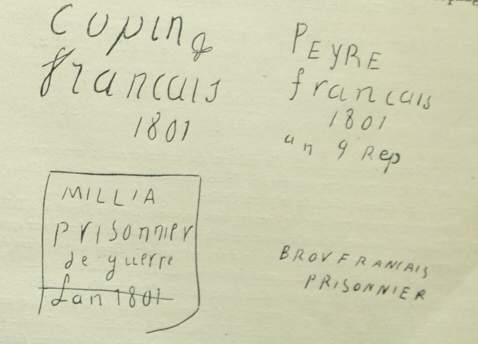 cuping
francais
1801
PEYRE
francais
1801
an 9 Rep
MILLIA
prisonnier
de guerre
Lan 1801
BROV FRANCAIS
PRISONNIER